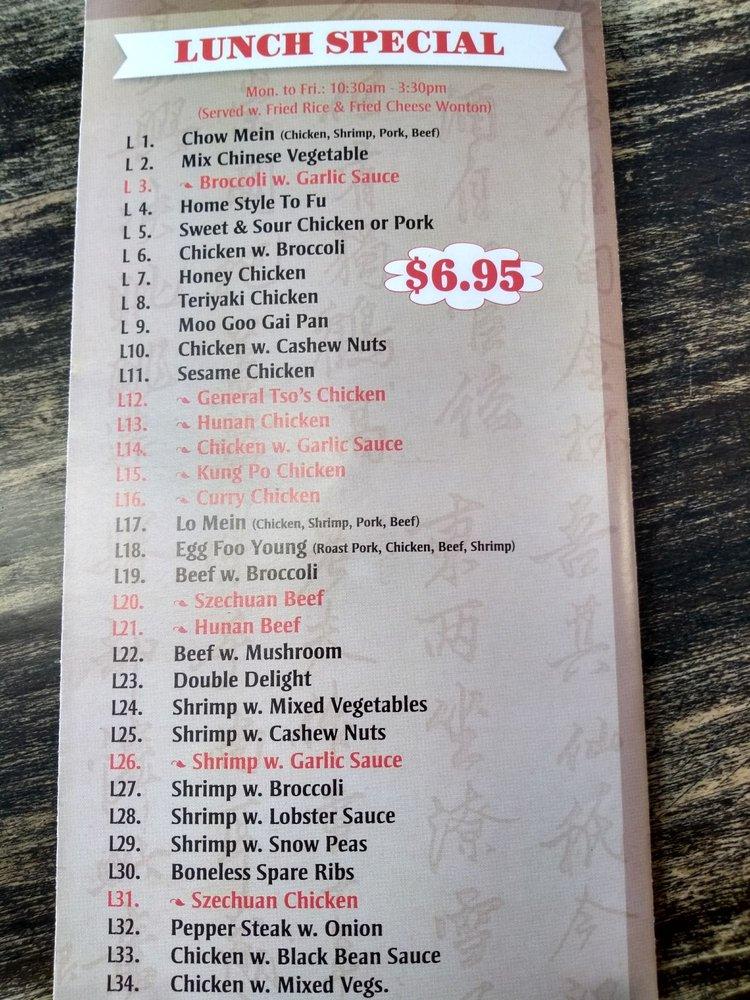 LUNCH SPECIAL
Mon. to Fri.: 10:30am - 3:30pm
(Served w. Fried Rice & Fried Cheese Wonton)
L 1. Chow Mein (Chicken, Shrimp, Pork, Beef)
L 2. Mix Chinese Vegetable
L 3. Broccoli w. Garlic Sauce
L 4. Home Style To Fu
L 5. Sweet & Sour Chicken or Pork
L 6. Chicken w. Broccoli
$6.95
L 7. Honey Chicken
L 8. Teriyaki Chicken
L 9. Moo Goo Gai Pan
L10. Chicken w. Cashew Nuts
L11. Sesame Chicken
L12. General Tso's Chicken
L13. Hunan Chicken
L14. Chicken w. Garlic Sauce
L15. Kung Po Chicken
L16. Curry Chicken
L17. Lo Mein (Chicken, Shrimp, Pork, Beef)
L18. Egg Foo Young (Roast Pork, Chicken, Beef, Shrimp)
L19. Beef w. Broccoli
L20. Szechuan Beef
L21. Hunan Beef
L22. Beef w. Mushroom
L23. Double Delight
L24. Shrimp w. Mixed Vegetables
L25. Shrimp w. Cashew Nuts
L26. Shrimp w. Garlic Sauce
L27. Shrimp w. Broccoli
L28. Shrimp w. Lobster Sauce
L29. Shrimp w. Snow Peas
L30. Boneless Spare Ribs
L31. Szechuan Chicken
L32. Pepper Steak w. Onion
L33. Chicken w. Black Bean Sauce
L34. Chicken w. Mixed Vegs.